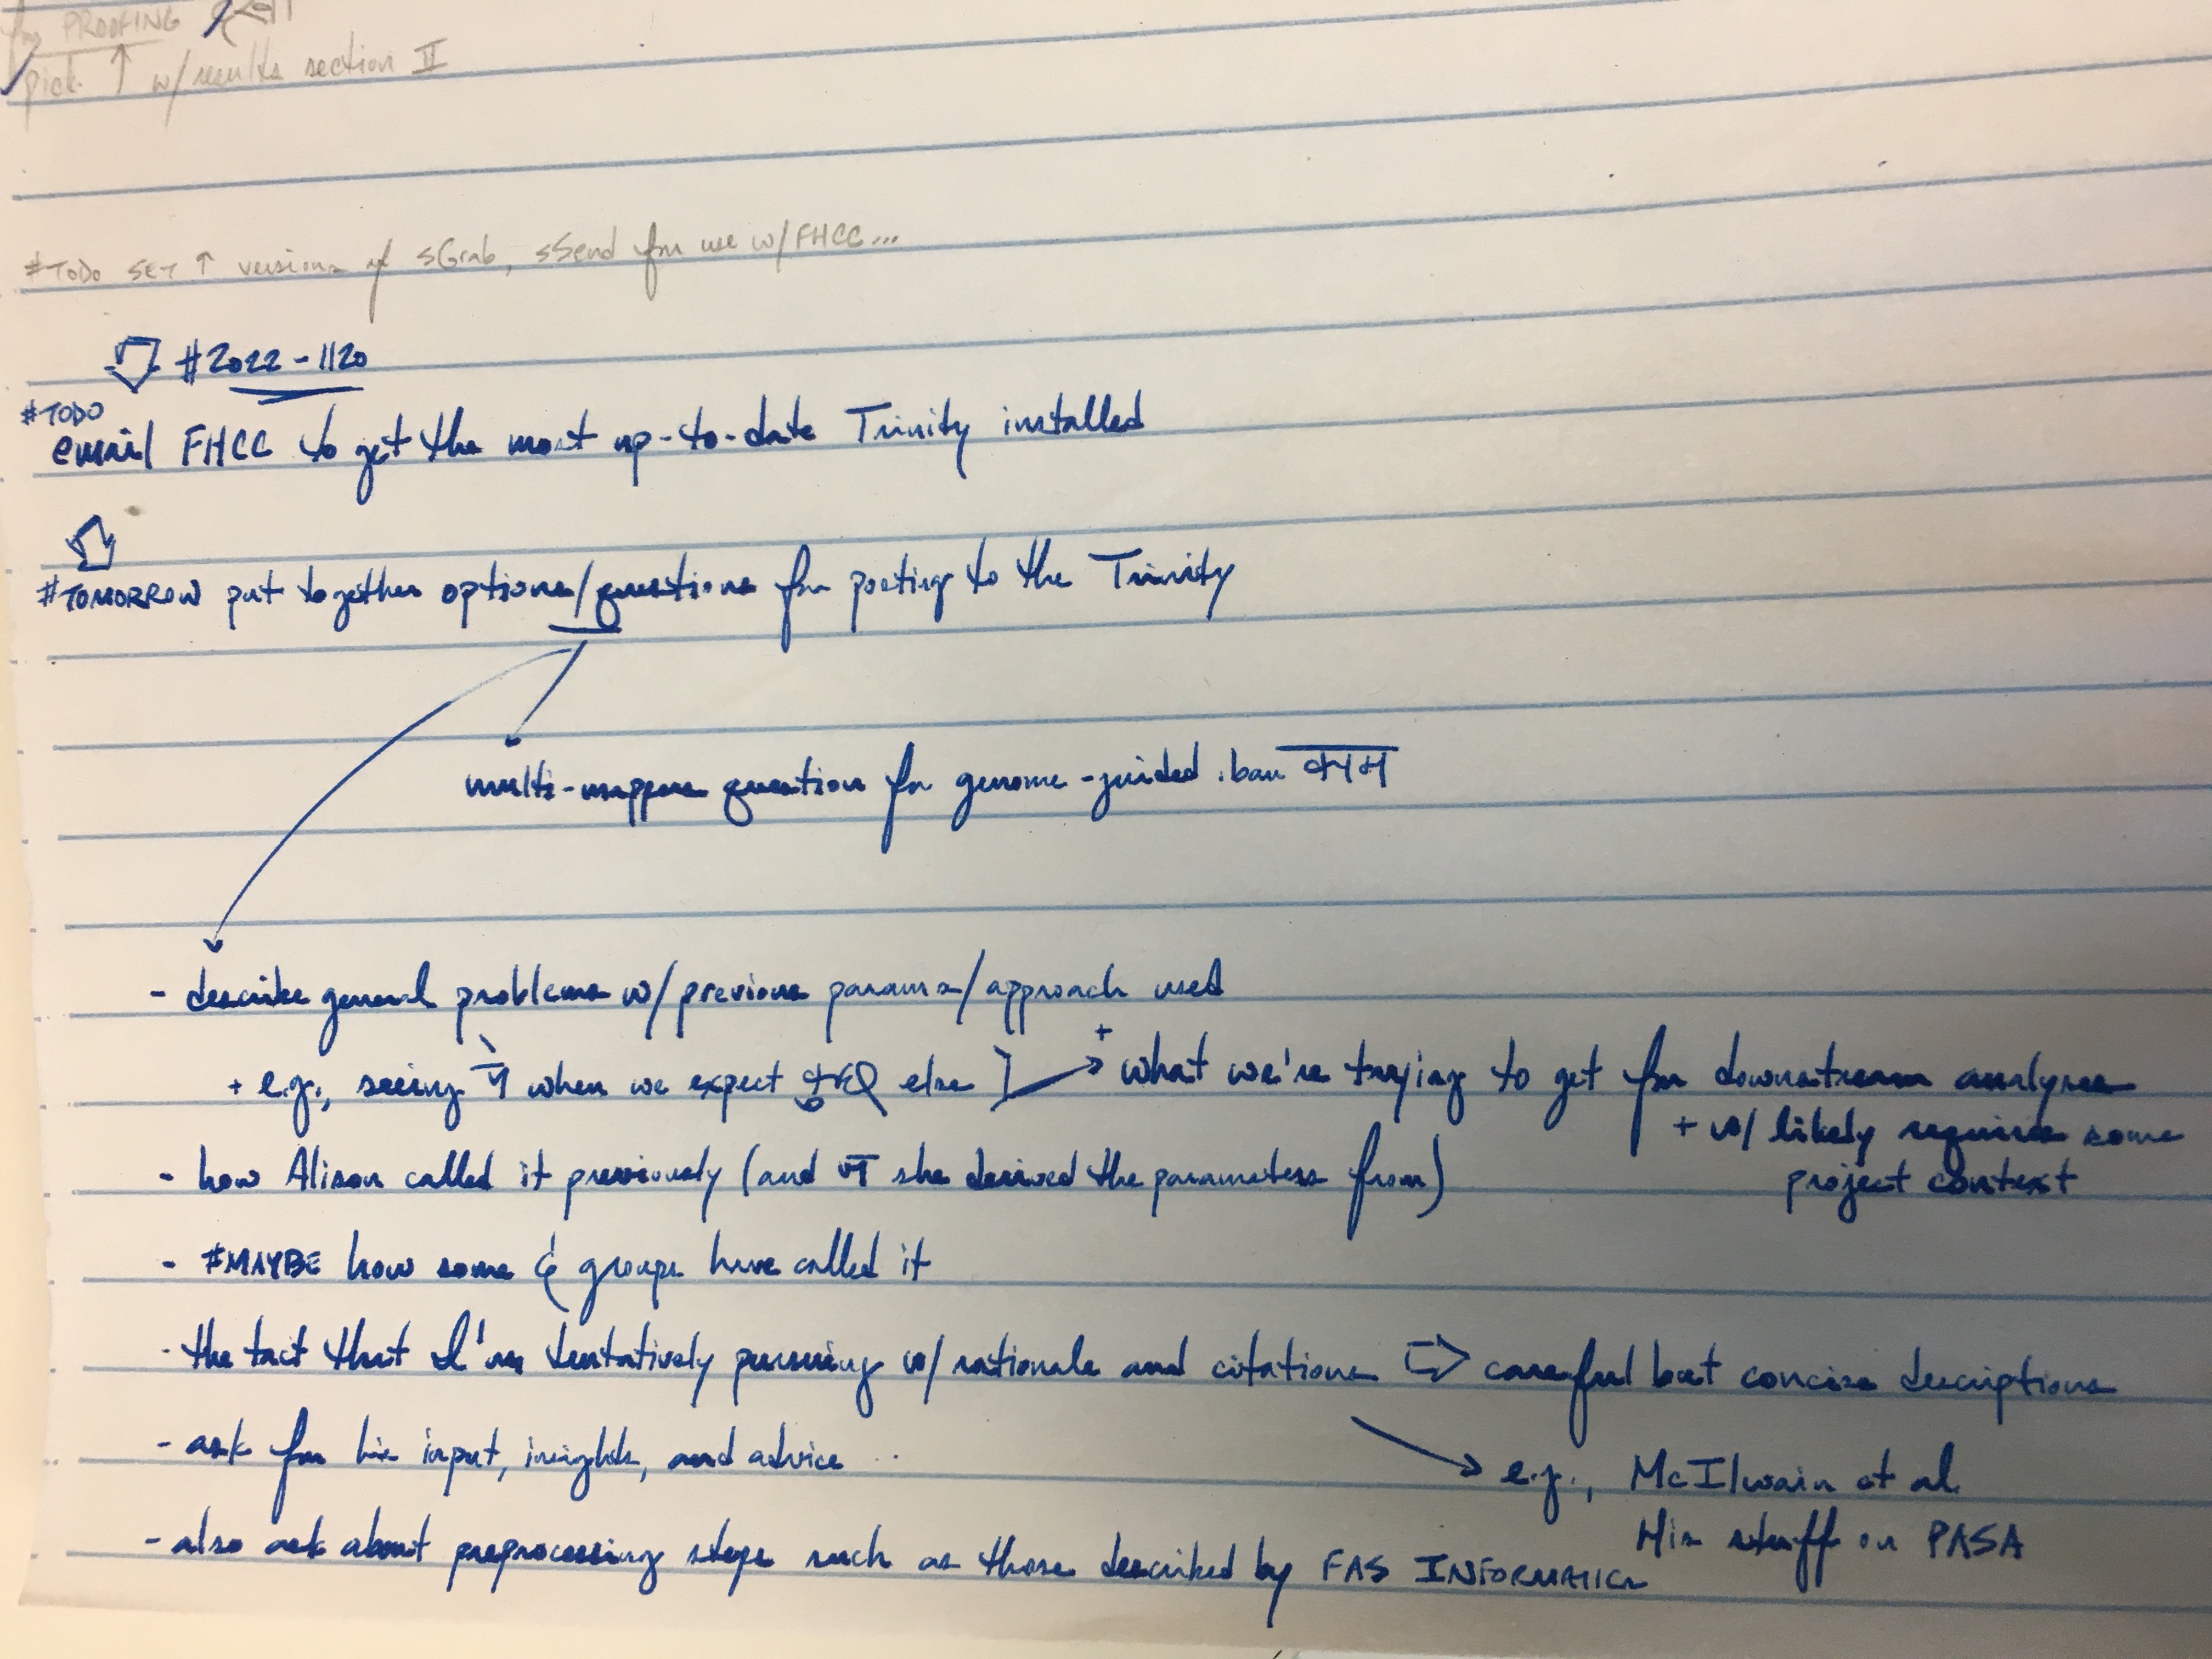 for PROOFING
pick ↑ w/results section II
#TODO SET ↑ versions of sGrab, sSend for use w/FHCC...
#2022-1120
#TODO
email FHCC to get the most up-to-date Trinity installed
#TOMORROW put together options/questions for posting to the Trinity
multi-mappers question for genome-guided .bam
- describe general problems w/previous params/approach used
+ e.g., seeing when we expect else ] → + what we're trying to get for downstream analyses
+ w/ likely requires some
project context
- how Alison called it previously (and she derived the parameters from)
- #MAYBE how some groups have called it
- the tact that I'm tentatively pursuing w/rationale and citations ⇨ careful but concise descriptions
- ask for his input, insights, and advice
→ e.g., McIlwain et al.
His stuff on PASA
- also ask about preprocessing steps such as those described by FAS INFORMATICS